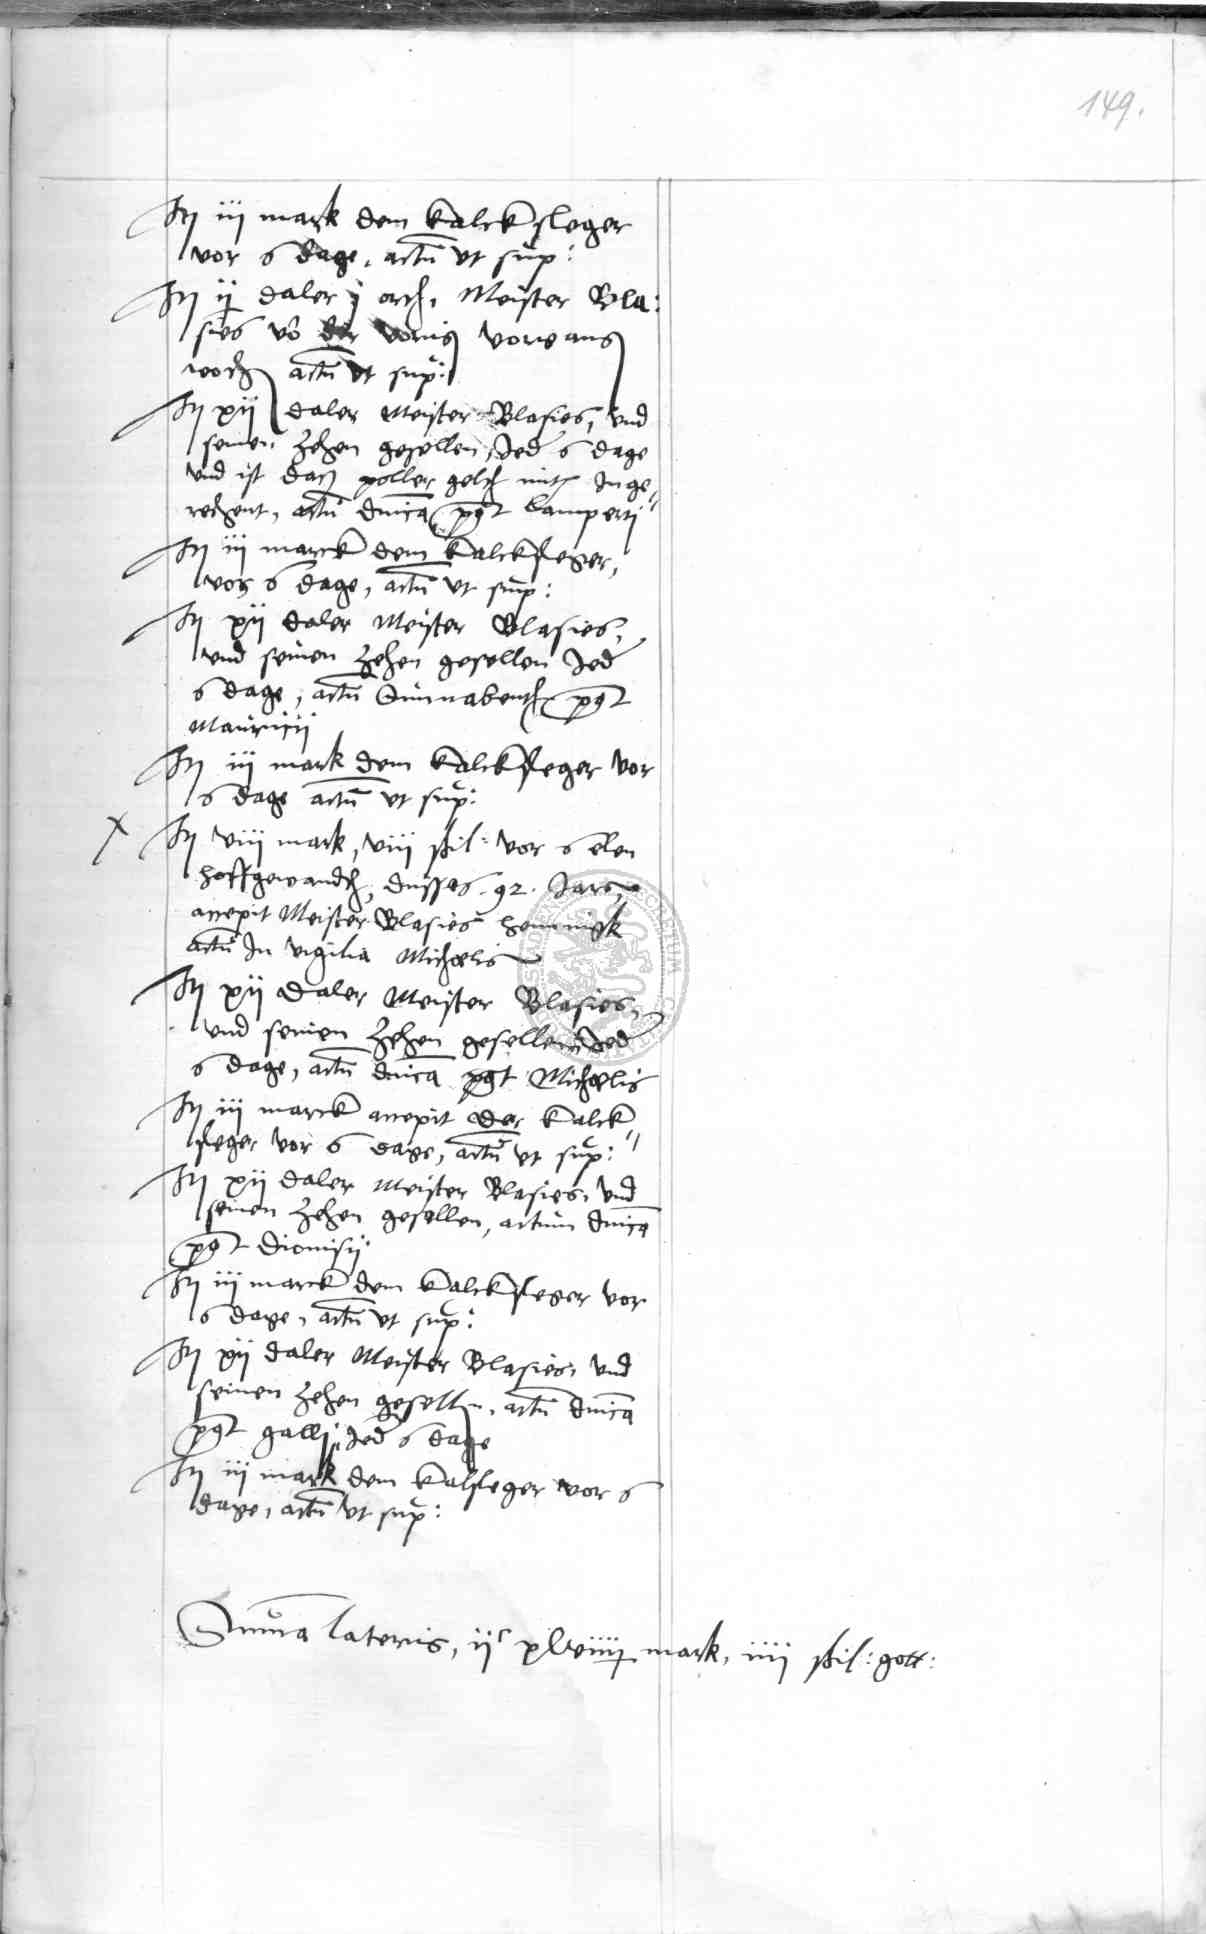 149.
It iij mark dem kalcksleger
vor 6 dage, actũ vt sup:
It ij daler j ort, Meister Bla:
sies võ der vorig
woch actũ vt sup:
It xij daler Meister Blasies, vnd
seinen zehen gesellen, Jed 6 dage
vnd ist das poller gelt mit Inge
rechent, actũ dnica pꝯt Lamperti
It iij marck dem kalcksleger,
vor 6 dage, actũ vt sup:
It xij daler Meister Blasies,
vnd seinen zehen gesellen Jed
6 dage, actũ Sunnabent pꝯt
Mauricij
It iij mark dem kalcksleger vor
6 dage actũ vt sup:
It viij mark, viij ßil: vor 6 elen
hoffgewandt, dusses 92. Jars,
accepit Meister Blasies Henningk
actũ In vigilia Michaelis
It xij daler Meister Blasies,
vnd seinen zehen gesellen Jed
6 dage, actũ dnica pꝯt Michaelis
It iij marck accepit der kalck
sleger vor 6 dage, actũ vt sup:
It xij daler Meister Blasies, vnd
seinen zehen gesellen, actum dnica
pꝯt Dionisij
It iij marck dem kalcksleger vor
6 dage, actũ vt sup:
It xij daler Meister Blasies, vnd
seinen zehen geselln, actũ dnica
pꝯt galli, Jed 6 dage
It iij mark dem kalsleger vor 6
dage, actũ vt sup:
Suma lateris, ijc xlviiij mark, iiij ßil: gott: